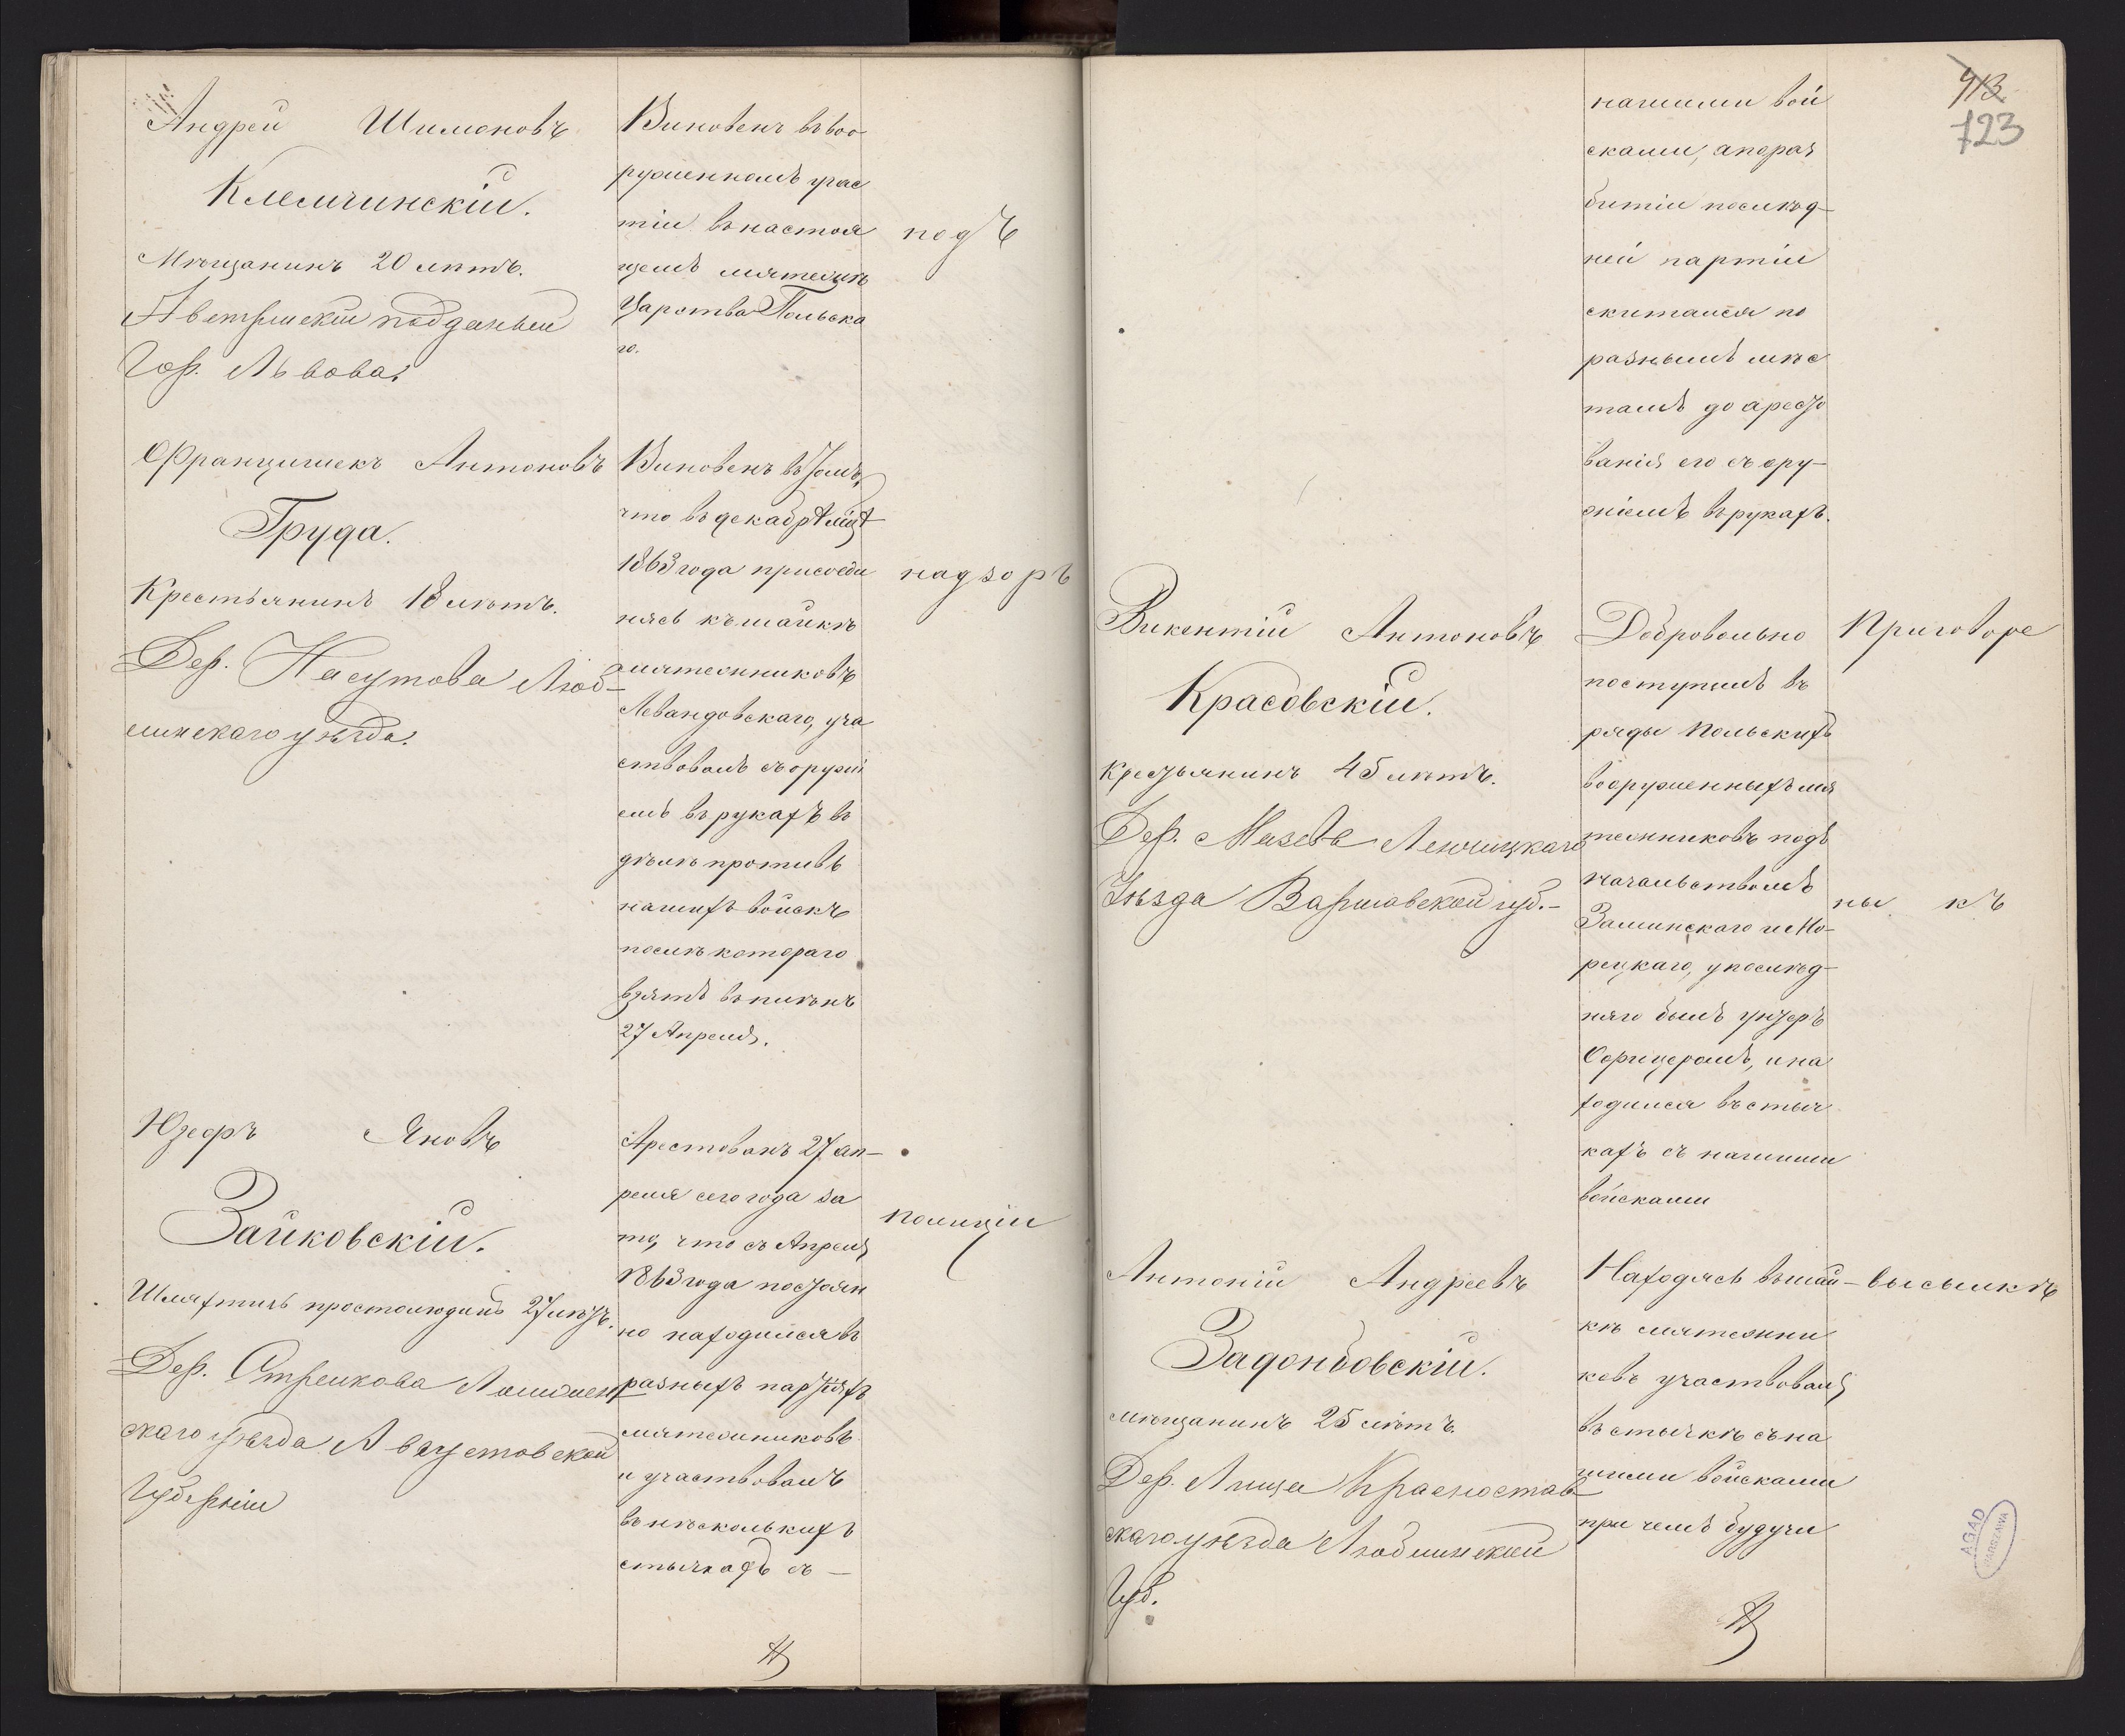 Андрей Шимоновъ
Клемчинскій.
Мѣщанинъ 20 лѣтъ.
Австрійскій подданый
Гор. Львова.
Виновенъ въ воо
руженномъ учас
тіи въ настоя
щемъ мятежѣ
Царства Польска
го.
подъ
Францишекъ Антоновъ
Груда.
Крестьянинъ 18 лѣтъ.
Дер. Насутова Люб-
линскаго уѣзда.
Виновенъ въ томъ,
что въ декабрѣ мцѣ
1863 года присоеди
нясь къ шайкѣ
мятежниковъ
Левандовскаго, уча
ствовалъ съ оружі
емъ въ рукахъ въ
дѣлѣ противъ
нашихъ войскъ
послѣ котораго
взятъ въ плѣнъ
27 Апреля.
надзоръ
Юзефъ Яновъ
Зайковскій.
Шляхтичъ простолюдинъ 27 лѣтъ.
Дер. Стрелкова Ломжен
скаго уѣзда Августовской
Губерніи
Арестованъ 27 ап-
реля сего года за
то, что съ Апреля
1863 года постоян
но находился въ
разныхъ партіяхъ
мятежниковъ
и участвовалъ
въ нѣсколькихъ
стычкахъ съ —
полиціи
413
723
нашими вой
сками, а по раз
битіи послѣд-
ней партіи
скитался по
разнымъ мѣс
тамъ до аресто
ванія его съ ору-
жіемъ въ рукахъ.
Викентій Антоновъ
Красовскій.
Крестьянинъ 45 лѣтъ.
Дер. Мазевъ Ленчицкаго
Уѣзда Варшавской губ.-
Добровольно
поступилъ въ
ряды Польскихъ
вооруженныхъ мя
тежниковъ подъ
начальствомъ
Заминскаго и Мо-
рецкаго, у послѣд-
няго былъ унтеръ
Офицеромъ, и на
ходился въ стыч
кахъ съ нашими
войсками
Приговоре
ны къ
Антоній Андреевъ
Задонбовскій.
мѣщанинъ 25 лѣтъ.
Дер. Лища Красностав-
скаго уѣзда Люблинской
Губ.
Находясь въ шай-
кѣ мятежни
ковъ участвовалъ
въ стычкѣ съ на
шими войсками
при чемъ будучи
высылкѣ
AGAD
WARSZAWA